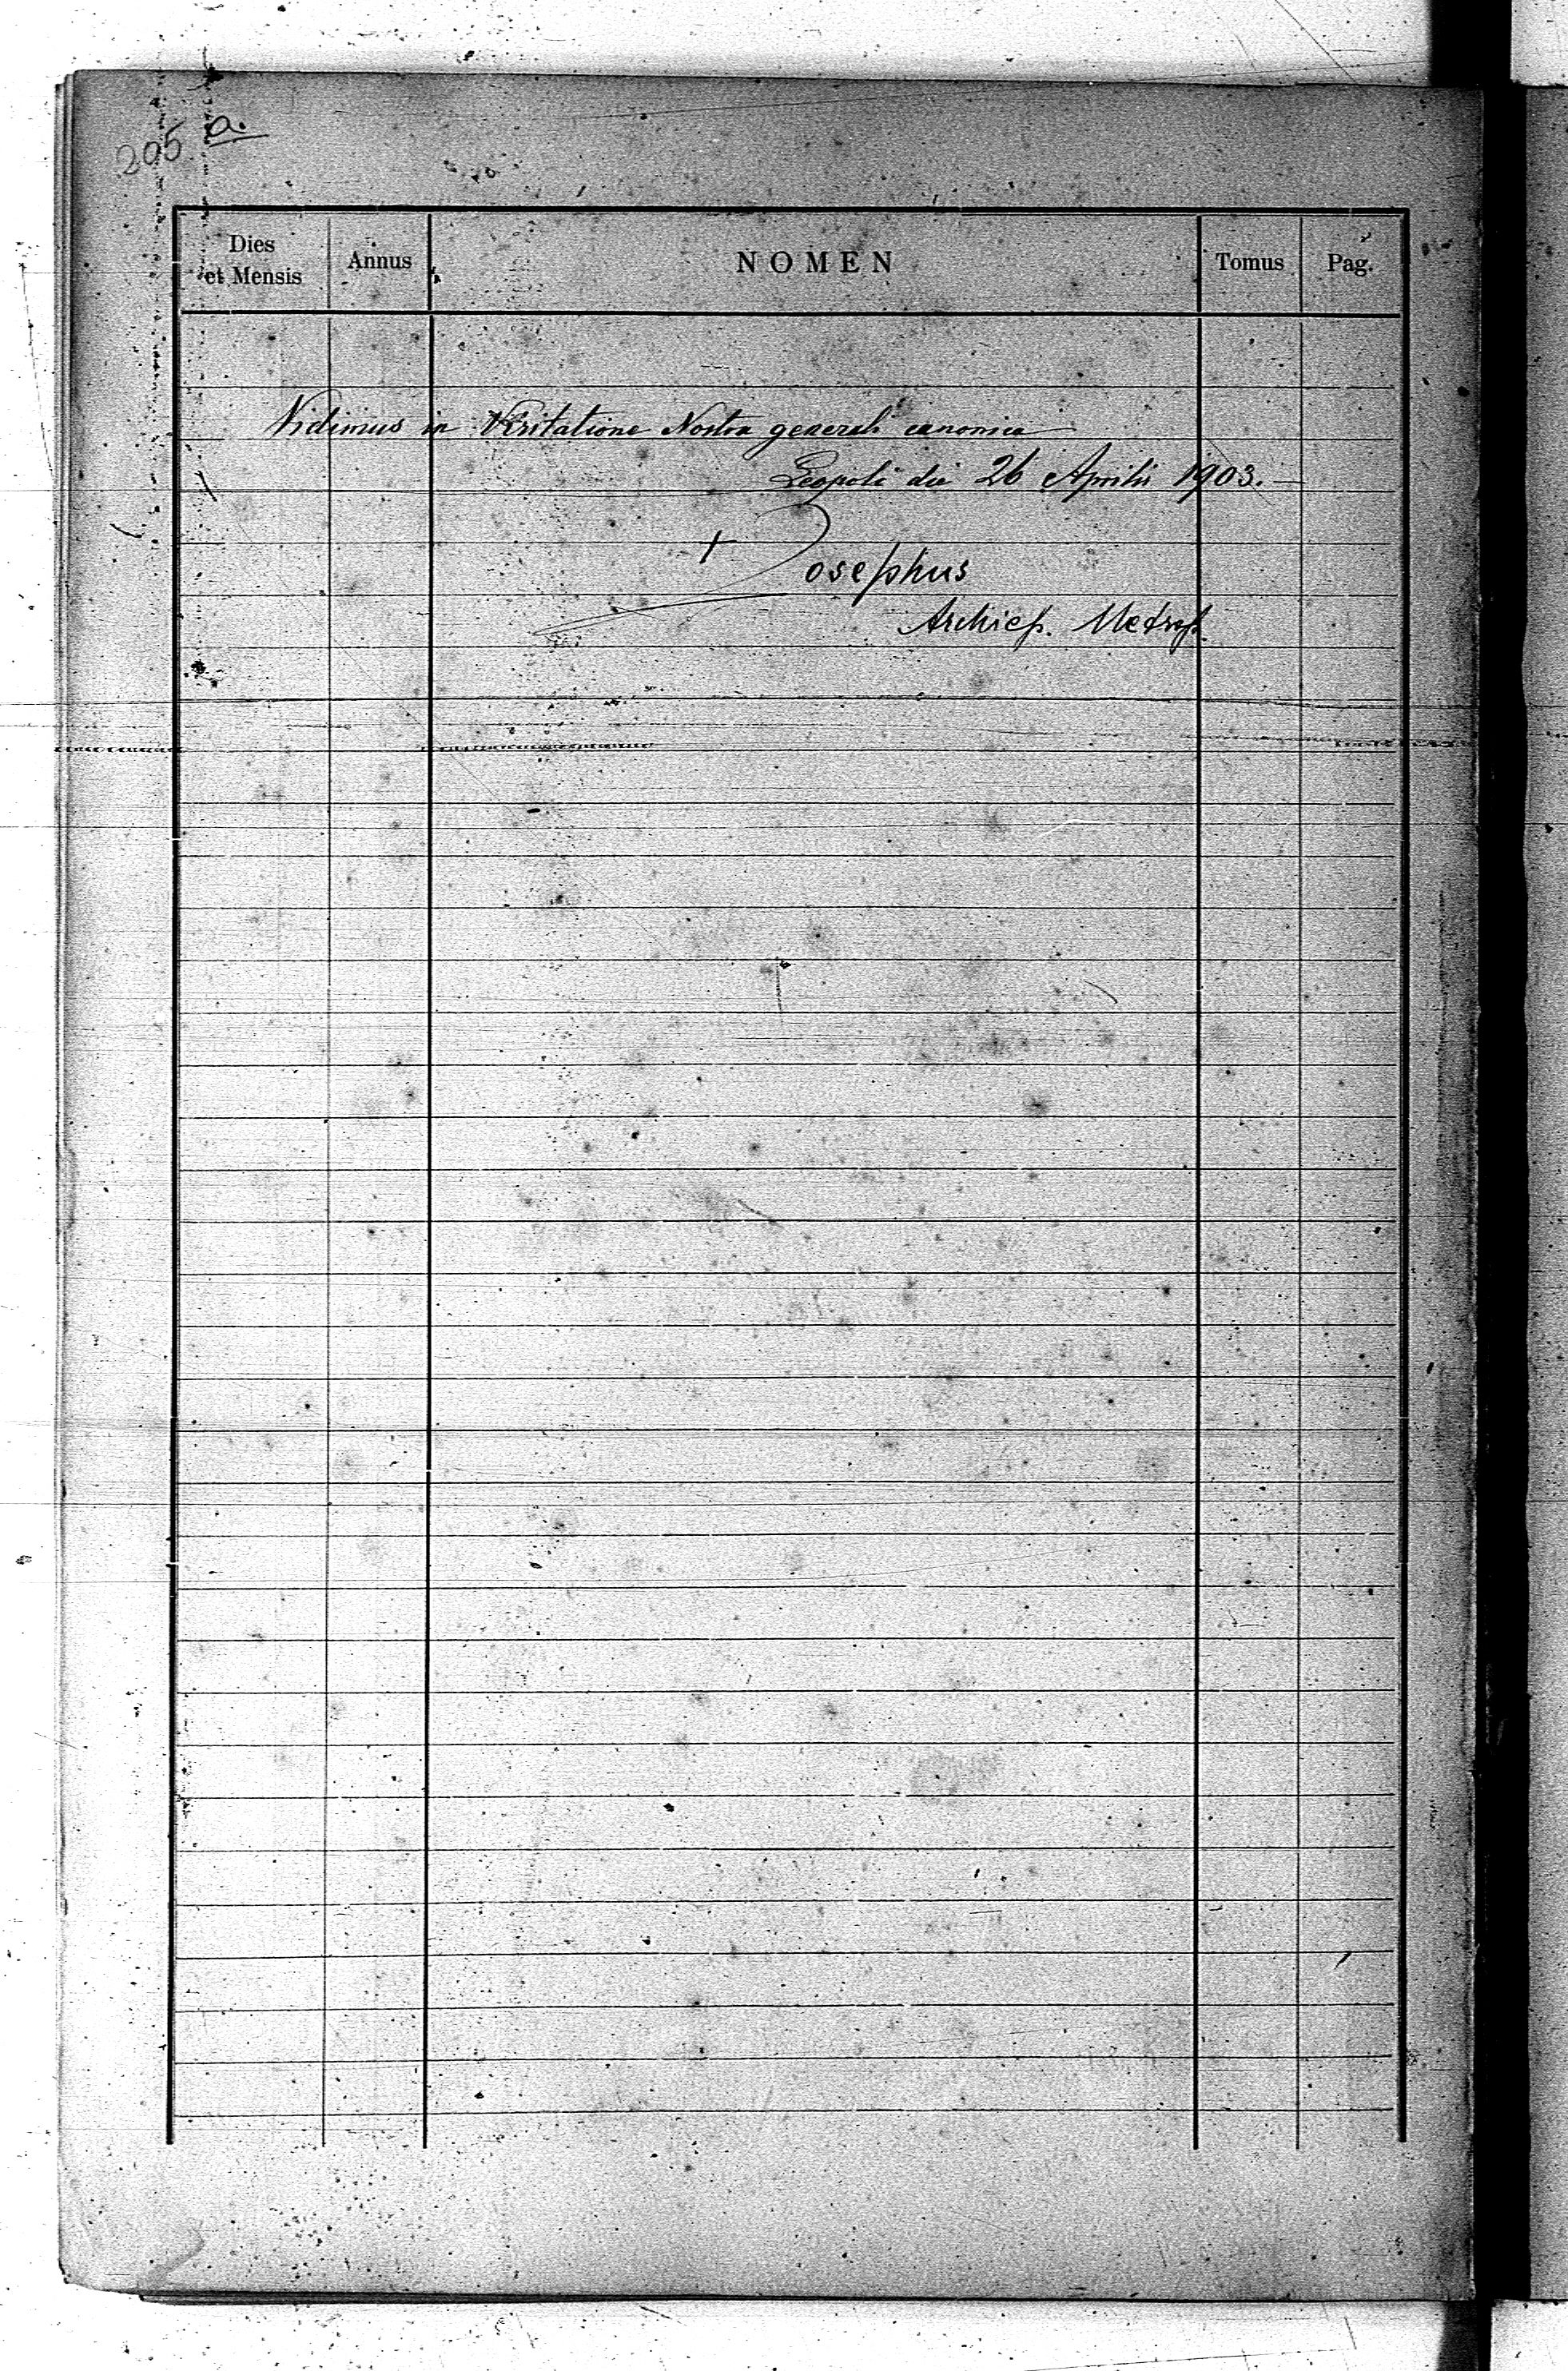 205 a.
Dies et Mensis Annus NOMEN Tomus Pag.
Vidimus in Visitatione Nostra generali canonica
Leopoli die 26 Aprilis 1903.
+ Josephus
Archiep. Metrop.